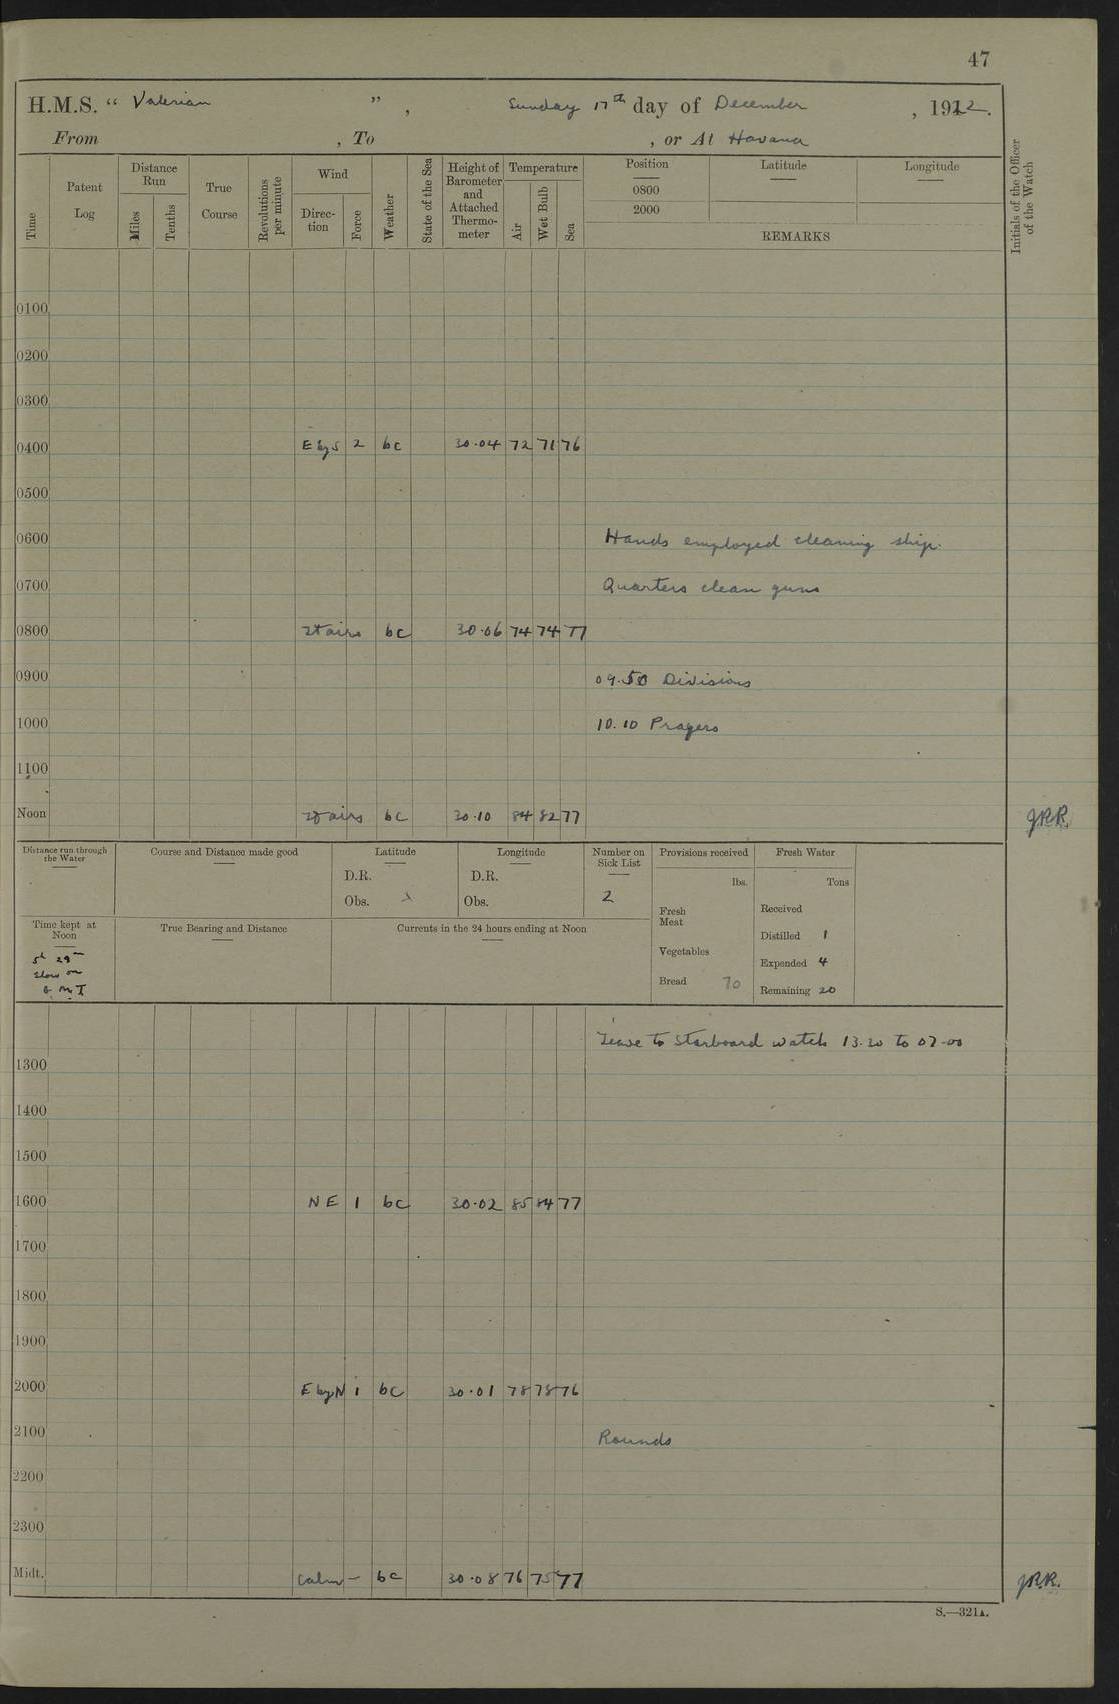 47
H.M.S. “ Valerian ” , Sunday 17th day of December , 1922.
From , To , or At Havana
Time
Patent Log
Distance Run
Miles
Tenths
True Course
Revolutions per minute
Wind
Direc-tion
Force
Weather
State of the Sea
Height of Barometer and Attached Thermo-meter
Temperature
Air
Wet Bulb
Sea
Position
0800
2000
Latitude
Longitude
REMARKS
Initials of the Officer of the Watch
0100
0200
0300
0400 E by S 2 bc 30.04 72 71 76
0500
0600 Hands employed cleaning ship.
0700 Quarters clean guns
0800 airs bc 30.06 74 74 77
0900 09.50 Divisions
1000 10.10 Prayers
1100
Noon airs bc 30.10 84 82 77 JRR.
Distance run through the Water
Course and Distance made good
Latitude
D.R.
Obs.
Longitude
D.R.
Obs.
Number on Sick List
2
Provisions received
lbs.
Fresh Meat
Vegetables
Bread 70
Fresh Water
Tons
Received
Distilled 1
Expended 4
Remaining 20
Time kept at Noon
5h 29m
slow on
G M T
True Bearing and Distance
Currents in the 24 hours ending at Noon
Leave to Starboard watch 13.20 to 07.00
1300
1400
1500
1600 NE 1 bc 30.02 85 84 77
1700
1800
1900
2000 E by N 1 bc 30.01 78 78 76
2100 Rounds
2200
2300
Midt. Calm – bc 30.08 76 75 77 JRR.
S.—321A.